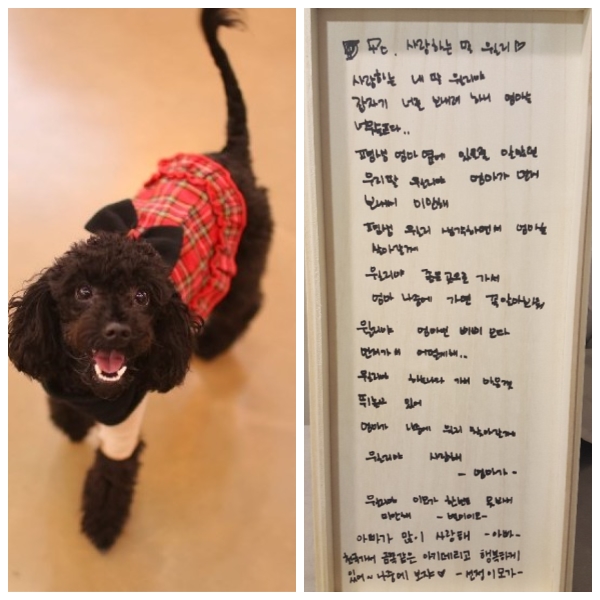 To. 사랑하는 딸 원리♡
사랑하는 내 딸 원리야
갑자기 너를 보내려 하니 엄마는
평생 엄마 옆에 있을줄 알았던
우리딸 원리야 엄마가 먼저
보내서 미안해
평생 원리 생각하면서 엄마는
살아갈게
원리야 좋은곳으로 가서
엄마 나중에 가면 꼭 알아봐줘
원리야 엄마면
먼저가서 어떡해..
원리야 하늘나라 가서 마음껏
뛰놀고 있어
엄마가 나중에 원리 찾아갈게
원리야 사랑해
- 엄마가 -
원리야 이모가 한번도 못봐서
미안해
아빠가 많이 사랑해 - 아빠 -
천국에서 행복하게
있어~ 나중에 보자♡ - 선정이모가 -